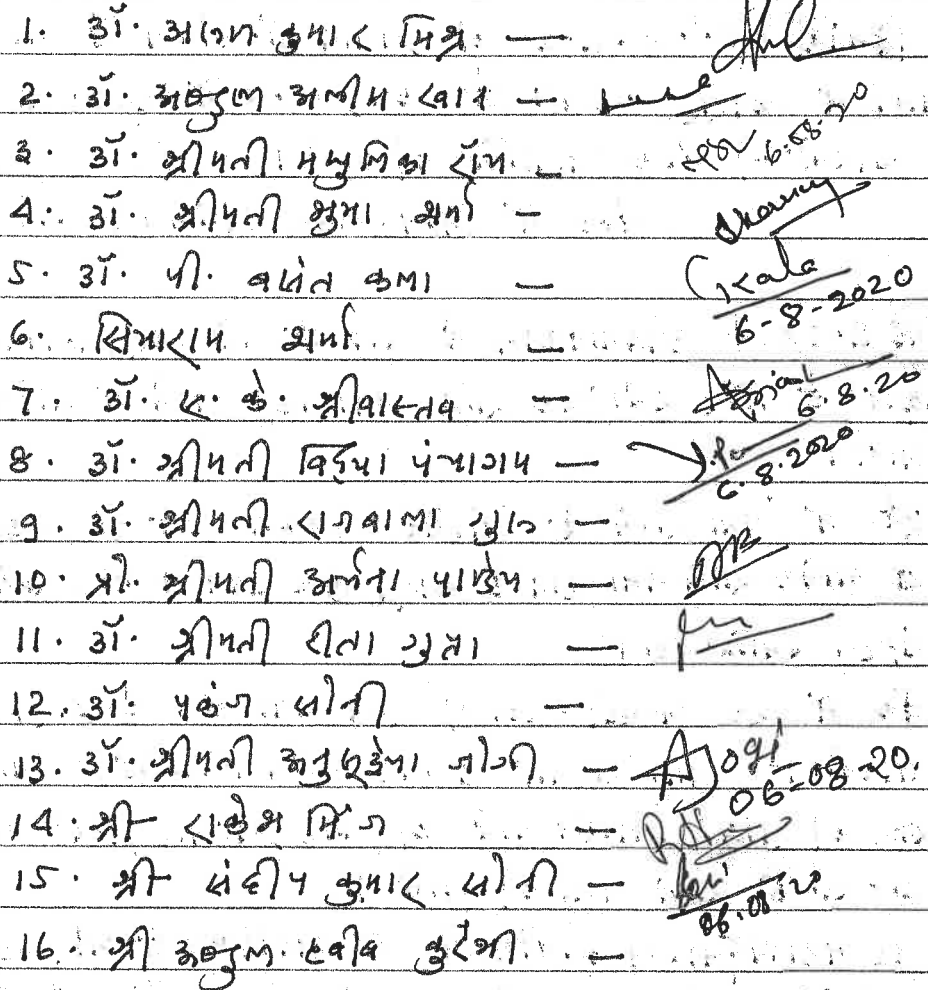 1. डॉ. अजय कुमार मिश्र —
2. डॉ. अब्दुल अलीम खान —
3. डॉ. श्रीमती मधुलिका रॉय — 6.08.20
4. डॉ. श्रीमती शर्मा — Sharma
5. डॉ. पी. वसंत कला — Kala 6-8-2020
6. सियाराम शर्मा —
7. डॉ. ए. के. श्रीवास्तव — 6.8.20
8. डॉ. श्रीमती विद्या पंचागम — 6.8.2020
9. डॉ. श्रीमती राजबाला गुरु —
10. प्रो. श्रीमती अर्चना पाण्डेय —
11. डॉ. श्रीमती रीता गुप्ता —
12. डॉ. पकंज सोनी —
13. डॉ. श्रीमती अनुसूईया जोगी — AJogi 06-08-20.
14. श्री राकेश मिंज —
15. श्री संदीप कुमार सोनी — 06.08.20
16. श्री अब्दुल हबीब कुरैशी —